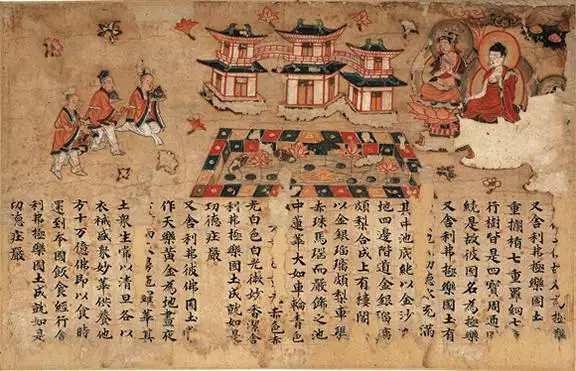 為極樂
又舍利弗極樂國土
重欄楯七重羅網七
行樹皆是四寶周迊
繞是故彼國名為極樂
又舍利弗極樂國土有
充滿
其中池底純以金沙
地四邊階道金銀瑠
頗梨合成上有樓閣
以金銀瑠璃頗梨車璖
赤珠馬瑙而嚴飾之池
中蓮華大如車輪青色
赤色赤
光白色白光微妙香潔舍
利弗極樂國土成就如是
功德莊嚴
又舍利弗彼佛國土
作天樂黃金為地晝夜
而雨華其
土眾生常以清旦各以
衣祴盛眾妙華供養他
方十万億佛即以食時
還到本國飯食經行舍
利弗極樂國土成就如是
功德莊嚴